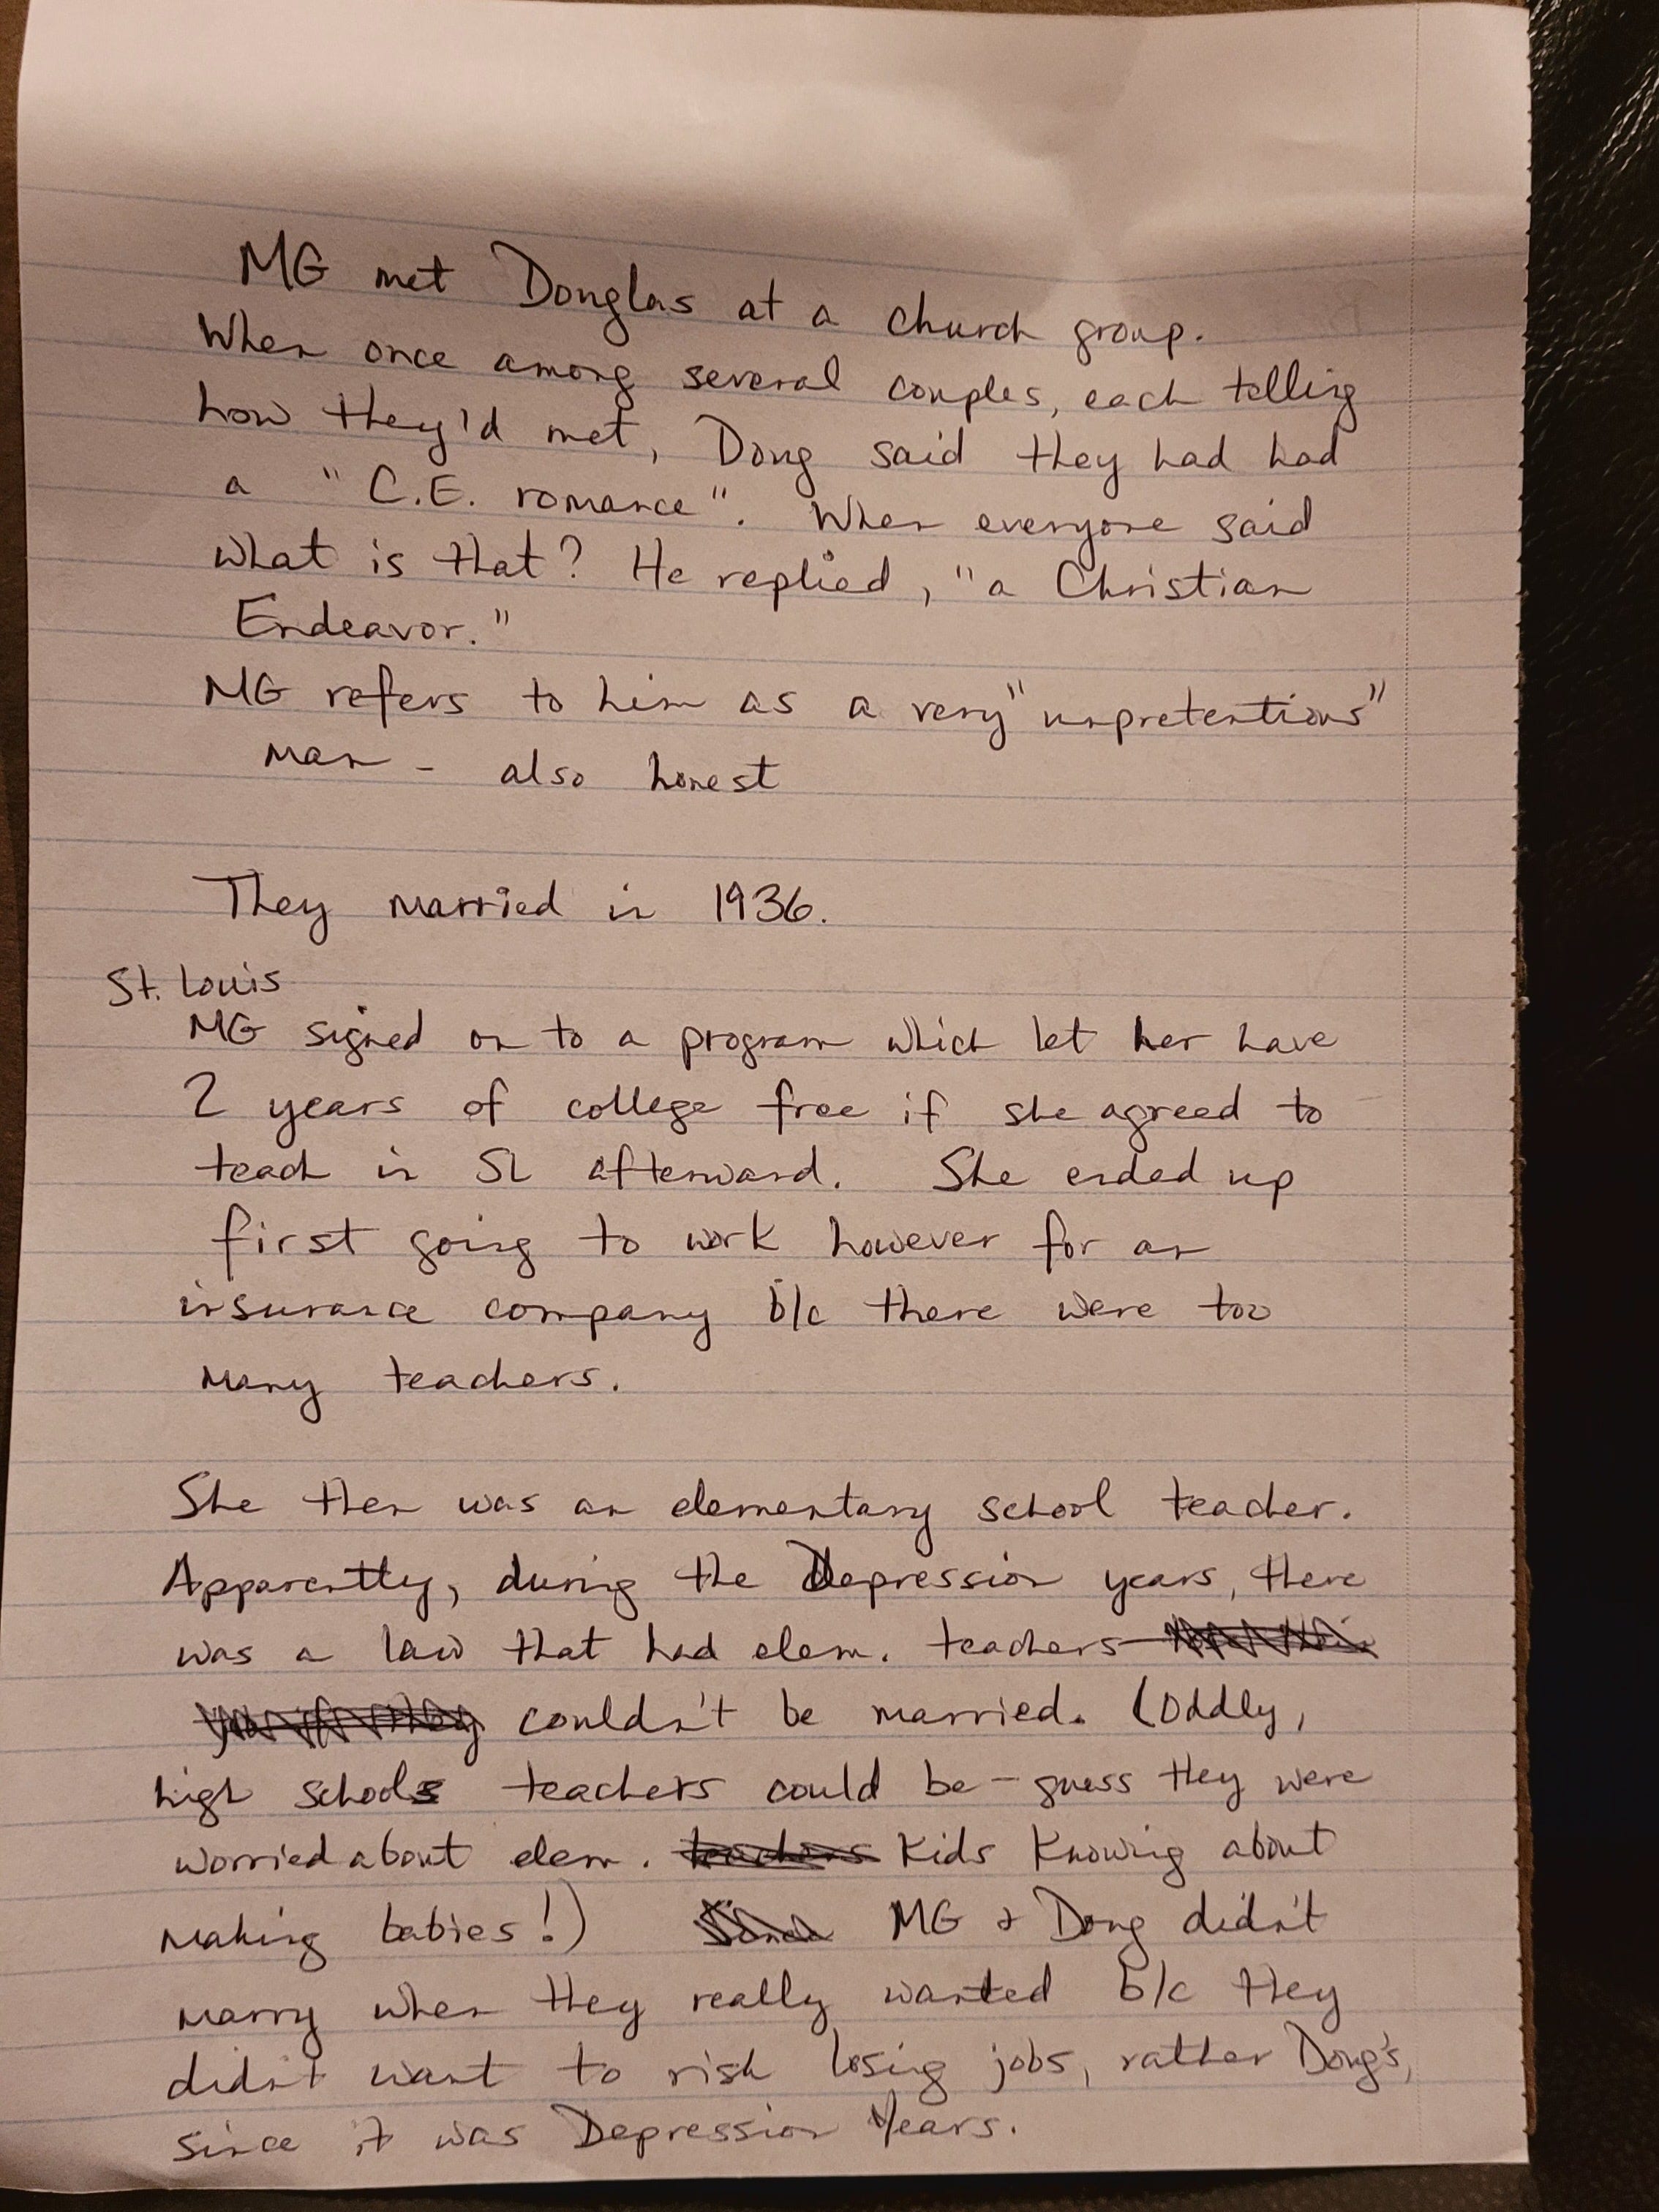 MG met Douglas at a church group.
When once among several couples, each telling
how they'd met, Doug said they had had
a "C.E. romance". When everyone said
what is that? He replied, "a Christian
Endeavor."
MG refers to him as a very "unpretentious"
man - also honest
They married in 1936.
St. Louis
MG signed on to a program which let her have
2 years of college free if she agreed to
teach in SL afterward. She ended up
first going to work however for an
insurance company b/c there were too
many teachers.
She then was an elementary school teacher.
Apparently, during the Depression years, there
was a law that had elem. teachers
couldn't be married. (Oddly,
high schools teachers could be - guess they were
worried about elem. teachers kids knowing about
making babies!) MG & Doug didn't
marry when they really wanted b/c they
didn't want to risk losing jobs, rather Doug's,
since it was Depression Years.